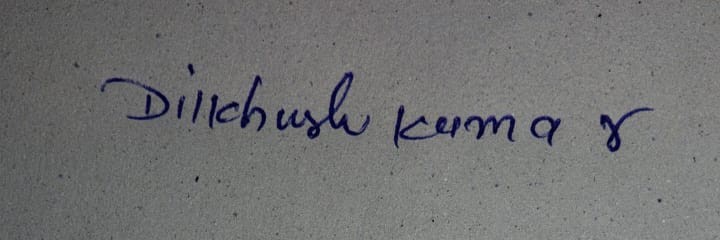 Dilkhush kumar